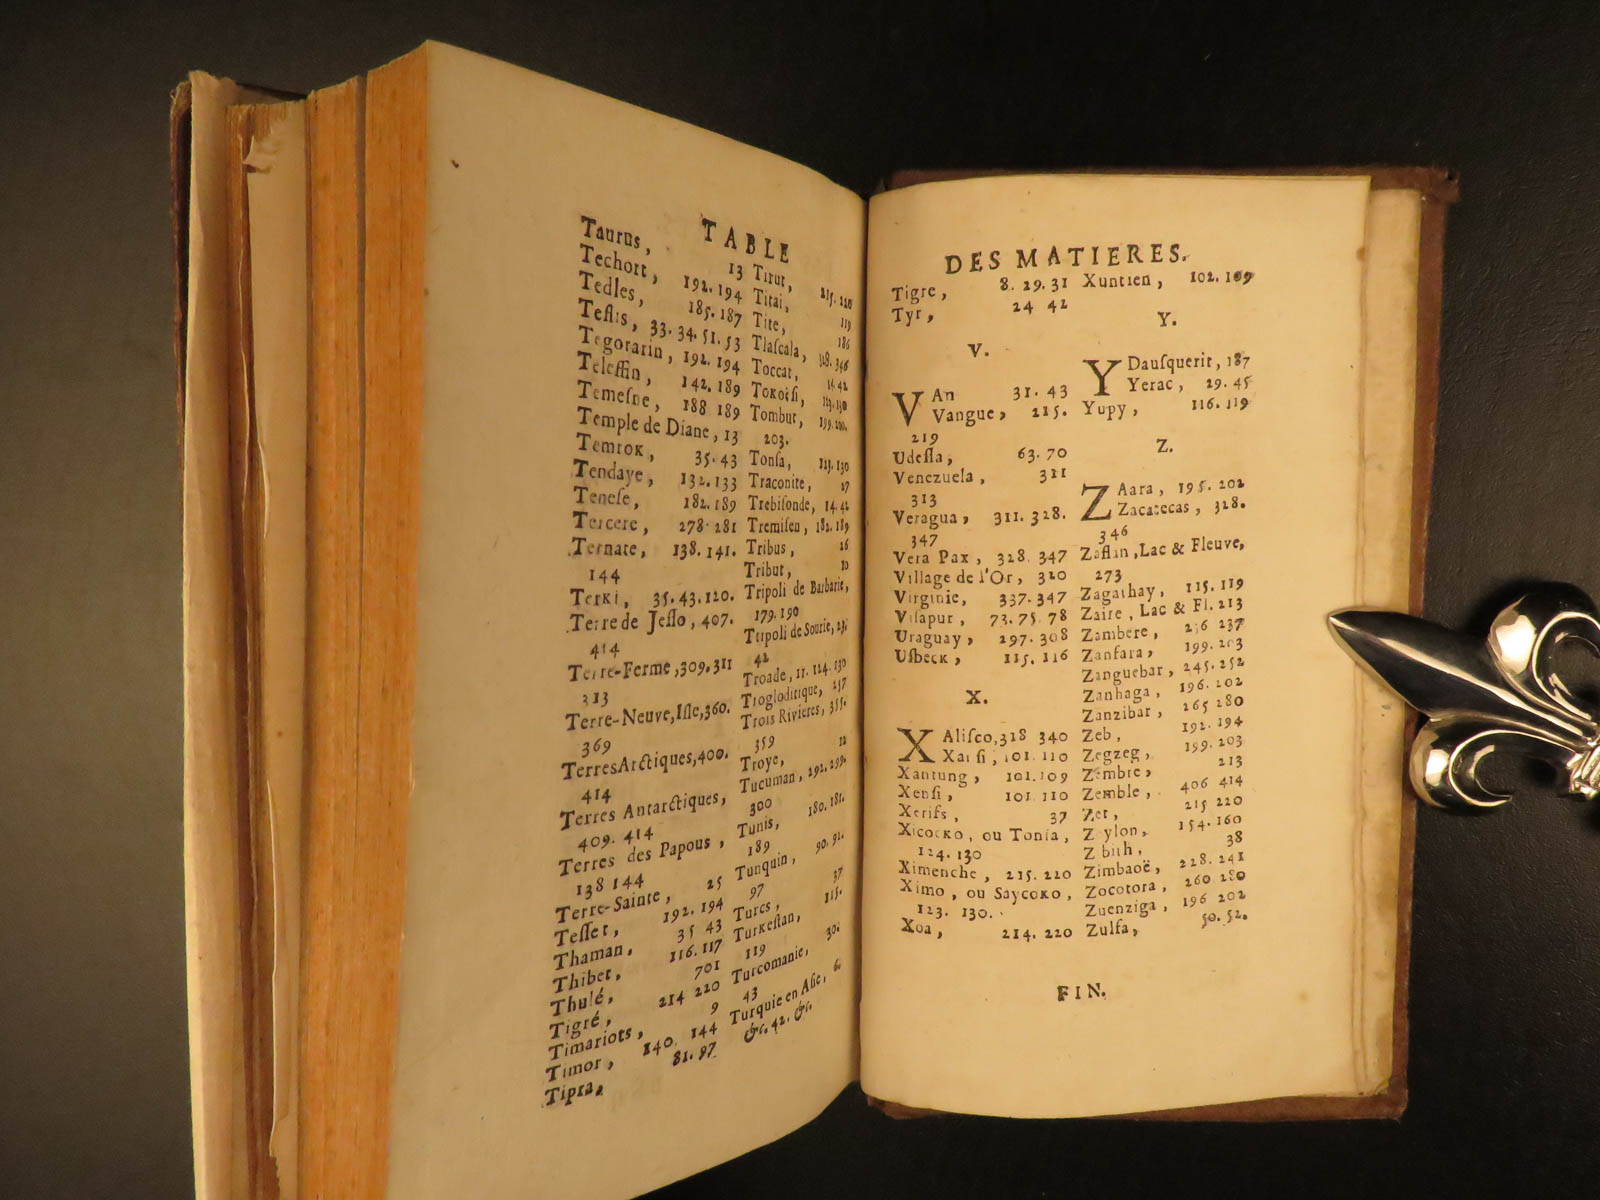 TABLE
Taurus, 13
Techort, 192. 194
Tedles, 185. 187
Teflis, 33. 34. 51. 53
Tegorarin, 192. 194
Teleſſin, 142. 189
Temeſne, 188 189
Temple de Diane, 13
Temroк, 35. 43
Tendaye, 132. 133
Teneſe, 182. 189
Tercere, 278. 281
Ternate, 138. 141.
144
Terкi, 35. 43. 120.
Terre de Jeſſo, 407.
414
Terre-Ferme, 309. 311
313
Terre-Neuve, Iſle, 360.
369
Terres Arctiques, 400.
414
Terres Antarctiques,
409. 414
Terres des Papous,
138 144
Terre-Sainte, 25
Teſſet, 192. 194
Thaman, 35 43
Thibet, 116. 117
Thulé, 701
Tigré, 214 220
Timariots, 9
Timor, 140. 144
Tipra, 81. 97
Titut, 215. 220
Titai, 119
Tite, 186
Tlaſcala, 328. 346
Toccat, 14. 42
Toкoëſi, 123. 130
Tombut, 199. 200.
203.
Tonſa, 123. 130
Traconite, 27
Trebiſonde, 14. 42
Tremiſen, 182. 189
Tribus, 26
Tribut,
Tripoli de Barbarie,
179. 190
Tripoli de Sourie, 23.
42
Troade, 11. 124. 130
Trogloditique, 257
Trois Rivieres, 355.
359
Troye, 12
Tucuman, 292. 299.
300
Tunis, 180. 181.
189
Tunquin, 90. 92.
97
Turcs, 37
Turкeſtan, 115.
119
Turcomanie, 30.
43
Turquie en Aſie, 6.
&c. 42. &c.
DES MATIERES.
Tigre, 8. 29. 31
Tyr, 24 42
V.
VAn 31. 43
Vangue, 215.
219
Udeſſa, 63. 70
Venezuela, 311
313
Veragua, 311. 328.
347
Vera Pax, 328. 347
Village de l'Or, 320
Virginie, 337. 347
Viſapur, 73. 75. 78
Uraguay, 297. 308
Uſbecк, 115. 116
X.
XAliſco, 318 340
Xarſi, 101. 110
Xantung, 101. 109
Xenſi, 101 110
Xerifs, 37
Xicocкo, ou Tonſa,
124. 130
Ximenche, 215. 220
Ximo, ou Saycoкo,
123. 130.
Xoa, 214. 220
Xuntien, 102. 109
Y.
YDauſquerit, 187
Yerac, 29. 45
Yupy, 116. 119
Z.
ZAara, 195. 202
Zacatecas, 328.
346
Zaflan, Lac & Fleuve,
273
Zagathay, 115. 119
Zaire, Lac & Fl. 213
Zambere, 236 237
Zanfara, 199. 203
Zanguebar, 245. 252
Zanhaga, 196. 202
Zanzibar, 265 280
Zeb, 192. 194
Zegzeg, 199. 203
Zembre, 213
Zemble, 406 414
Zet, 215 220
Z ylon, 154. 160
Z bith, 38
Zimbaoë, 228. 241
Zocotora, 260 280
Zuenziga, 196 202
Zulfa, 50. 52.
FIN.